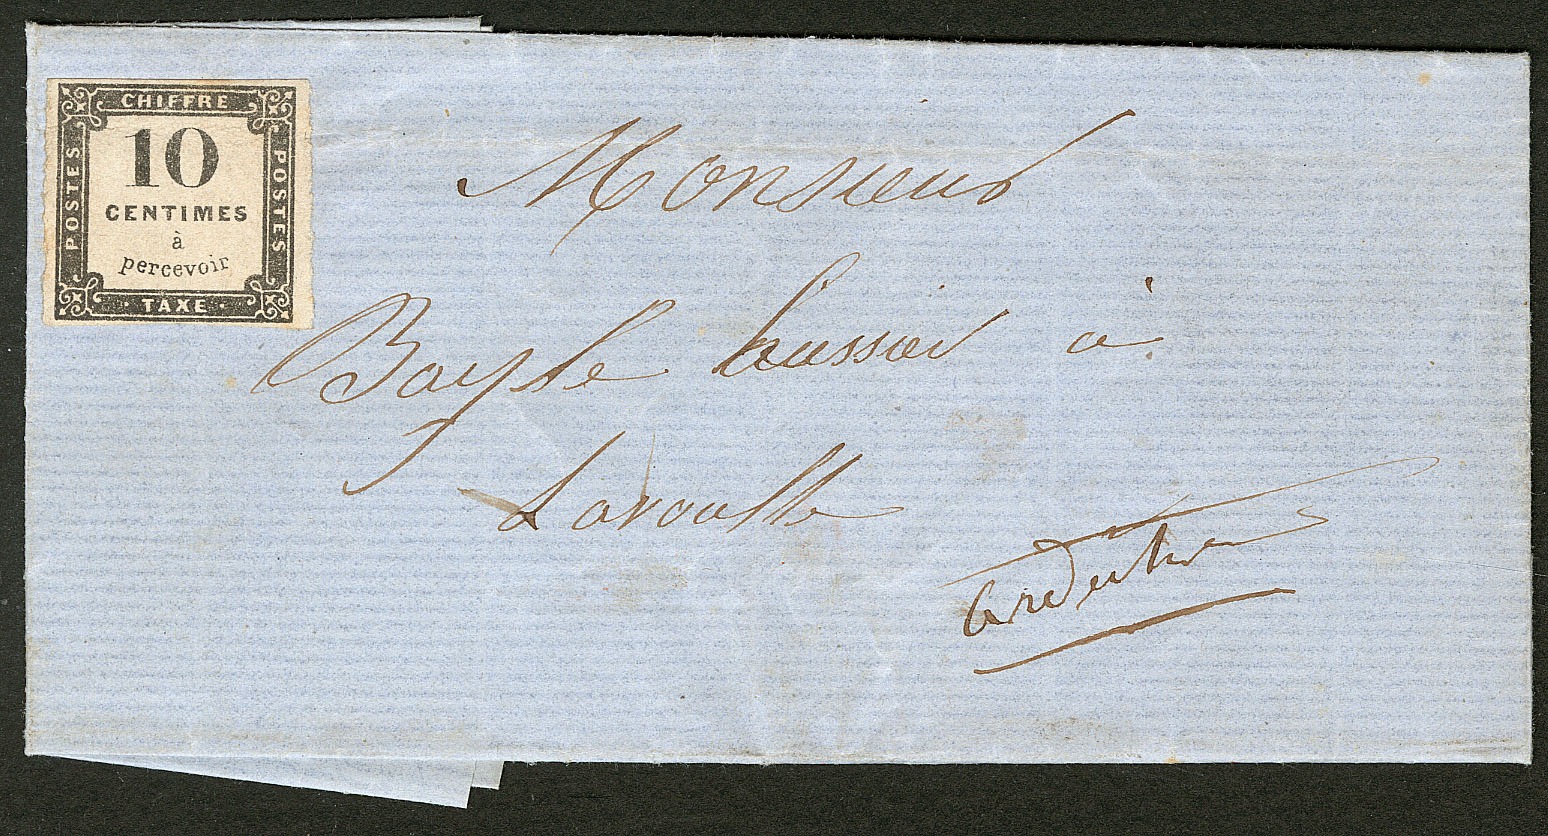 CHIFFRE
POSTES
POSTES
10
CENTIMES
à
percevoir
· TAXE ·
Monsieur
Bayle huissier à
Lavoulte
ardèche